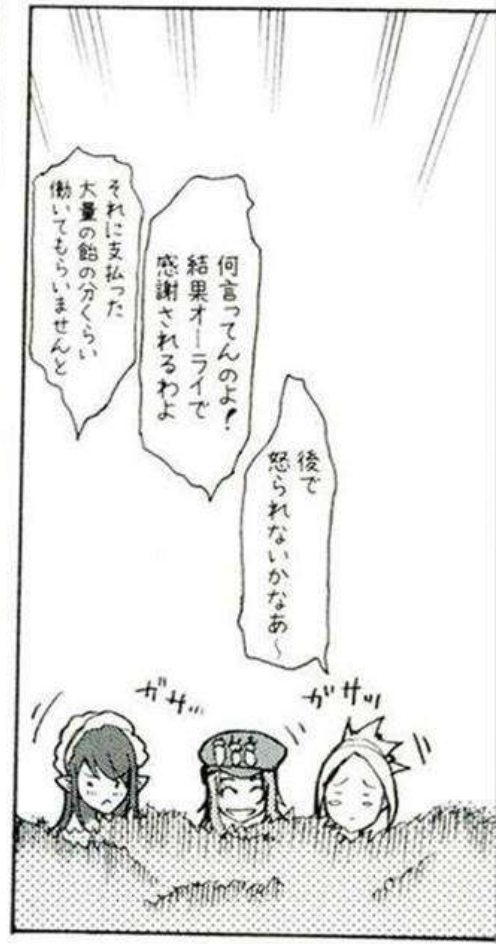 後で
怒られないかなあ～
何言ってんのよ！
結果オーライで
感謝されるわよ
それに支払った
大量の飴の分くらい
働いてもらいませんと
ガサッ
ガサ…